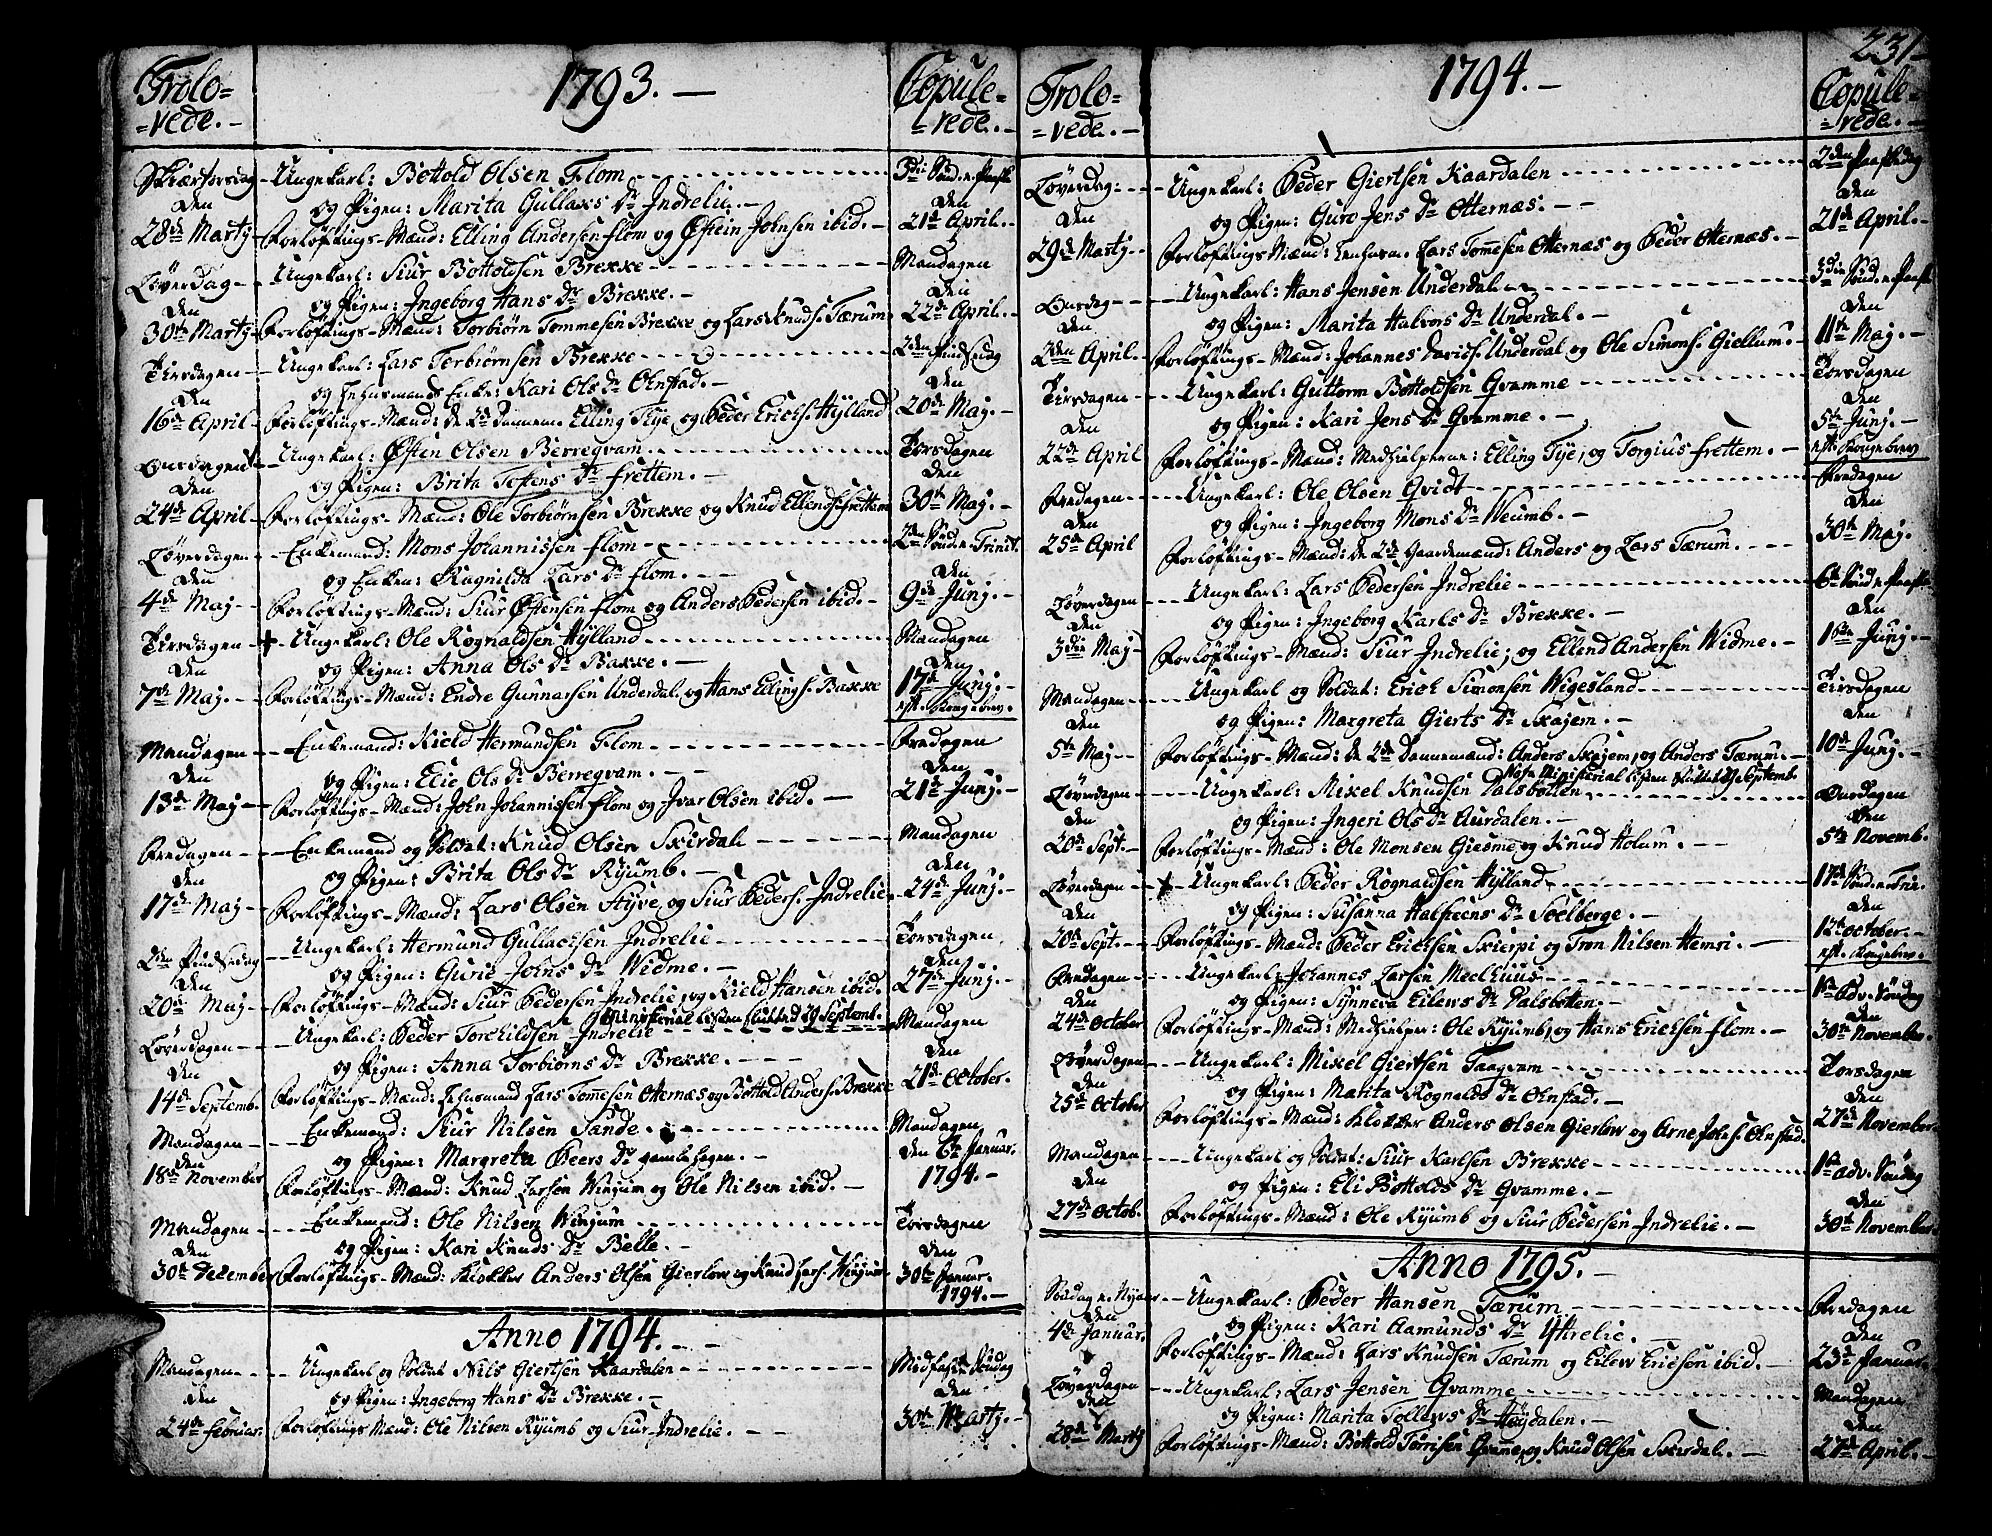 231
Trolo=
=vede.
1793.
Copule=
=rede.
Skiærtorsdag
den
28de Martij
Ungekarl: Bottold Olsen Flom
og Pigen: Marita Gullaks Dr Indrelie.
Forløftings-Mænd: Elling Andersen flom og Østein Johnsen ibid.
3die Sønd. e. Paaske
den
21de April.
Løverdag
den
30te Martij
Ungekarl: Siur Bottoldsen Brekke
og Pigen: Ingeborg Hans Dr Brekke.
Forløftings-Mænd: Torbiørn Tommesen Brekke og Lars Knuds. Tærum
Mandagen
den
22de April.
Tirsdagen
den
16de April
Ungekarl: Lars Torbiørnsen Brekke
og Huusmands Enke: Kari Ols Dr Ohnstad.
Forløftings-Mænd: de 2de Dannemænd Elling Tÿe og Peder Erichs. Hÿlland
2den Pindsedag
den
20de Maj.
Onsdagen
den
24de April
Ungekarl: Østen Olsen Berreqvam
og Pigen: Brita Tostens Dr frettem.
Forløftings-Mænd: Ole Torbiørnsen Brekke og Knud Ellends. frettem
Torsdagen
den
30te Maj.
Løverdagen
den
4de Maj
Enkemand: Mons Johannissen flom
og Enken: Ragnilda Lars Dr flom.
Forløftings-Mænd: Siur Østensen flom og Anders Pedersen ibid.
2den Sønd. e. Trinit.
den
9de Junj.
Tirsdagen
den
7de Maj.
+ Ungekarl: Ole Rognaldsen Hÿlland
og Pigen: Anna Ols Dr Bakke.
Forløftings-Mænd: Endre Gunnarsen Underdal og Hans Ellings. Bakke
Mandagen
den
17de Junj.
eft. Kongebrev.
Mandagen
den
13de Maj
Enkemand: Kield Hermundsen Flom
og Pigen: Elie Ols Dr Berreqvam.
Forløftings-Mænd: John Johannissen flom og Ivar Olsen ibid.
Fredagen
den
21de Junj.
Fredagen
den
17de Maj
Enkemand og Soldat: Knud Olsen Skirdal
og Pigen: Brita Ols Dr Rÿumb.
Forløftings-Mænd: Lars Olsen Stÿve og Siur Peders. Indrelie
Mandagen
den
24de Junj.
2den Pindsedag
den
20de Maj
Ungekarl: Hermund Gullachsen Indrelie
og Pigen: Gurie Johns Dr Widme.
Forløftings-Mænd: Siur Pedersen Indrelie og Kield Hansen ibid.
Torsdagen
den
27de Junj.
Ministerial Listen sluttet d 29 Septemb.
Løverdagen
den
14de Septemb.
Ungekarl: Peder Torchildsen Indrelie
og Pigen: Anna Torbiørns Dr Brekke.
Forløftings-Mænd: Huusmand Lars Tomesen Otternæs og Bottold Anders. Brekke
Mandagen
den
21de October.
Mandagen
den
18de November
Enkemand: Siur Nilsen Sande.
og Pigen: Margreta Peers Dr gamlehagen.
Forløftings-Mænd: Knud Larsen Winjum og Ole Nilsen ibid.
Mandagen
den 6te Januar.
1794.
Mandagen
den
30te Dezember
Enkemand: Ole Nilsen Winjum
og Pigen: Kari Knuds Dr Belle.
Forløftings-Mænd: Klokker Anders Olsen Gierløw og Knud Lars. Winjum
Torsdagen
den
30te Januar.
1794.
Anno 1794.
Mandagen
den
24de Februar.
Ungekarl og Soldat Nils Giertsen Kaardalen
og Pigen: Ingeborg Hans Dr Brekke.
Forløftings Mænd: Ole Nilsen Rÿumb og Siur Indrelie.
Midfaste Søndag
den
30te Martij.
Trolo=
=vede.
1794.
Copule=
=rede.
Løverdag
den
29de Martij
Ungekarl: Peder Giertsen Kaardalen
og Pigen: Guro Jens Dr Otternæs.
Forløftings Mænd: Lars Tomesen Otternæs og Peder Otternæs.
2den Paaskedag
den
21de April.
Onsdag
den
2den April.
Ungekarl: Hans Jensen Underdal
og Pigen: Marita Halvors Dr Underdal.
Forløftings-Mænd: Johannes Davids. Underdal og Ole Simons. Giellum.
3die Sønd. e. Paaske
den
11te Maj.
Tirsdagen
den
22de April
Ungekarl: Guttorm Bottoldsen Qvamme
og Pigen: Kari Jens Dr Qvamme.
Forløftings-Mænd: Medhielperne: Elling Tÿe, og Torgius frettem.
Torsdagen
den
5te Junj.
eft. Kongebrev
Fredagen
den
25de April
Ungekarl: Ole Olsen Gvidt
og Pigen: Ingeborg Mons Dr Neumb.
Forløftings-Mænd: de 2de Gaardemænd: Anders og Lars Tærum.
Fredagen
den
30te Maj.
Løverdagen
den
3die Maj
Ungekarl: Lars Pedersen Indrelie
og Pigen: Ingeborg Karls Dr Brekke.
Forløftings-Mænd: Siur Indrelie; og Ellend Andersen Widme.
6te Sønd. e. Paaske
den
1ste Junj.
Mandagen
den
5te Maj
Ungekarl og Soldat: Erich Simonsen Wigesland
og Pigen: Margreta Gierts Dr Skajem.
Forløftings-Mænd: de 2de Dannemænd: Anders Skajem, og Anders Tærum.
Tirsdagen
den
10de Junj.
Nota Ministerial Listen sluttet d 29 Septemb.
Løverdagen
den
20de Sept.
Ungekarl: Mikel Knudsen Dalsbotten
og Pigen: Ingeri Ols Dr Aurdalen.
Forløftings-Mænd: Ole Monsen Giesme og Knud Holum.
Onsdagen
den
5te Novemb.
Løverdagen
den
20de Sept.
+ Ungekarl: Peder Rognaldsen Hÿlland
og Pigen: Susanna Halsteens Dr Soelberge.
Forløftings-Mænd: Peder Erichsen Skierpi og Tron Nilsen Hemri.
17de Sønd. e. Trin.
den
12te October.
eft. Kongebrev.
Fredagen
den
24de October
Ungekarl: Johannes Larsen Meelhuus
og Pigen: Sÿnneva Eilews Dr Dalsbotten.
Forløftings-Mænd: Medhielper: Ole Rÿumb, og Hans Erichsen flom.
1ste Adv. Søndag
den
30te November.
Løverdagen
den
25de October
Ungekarl: Mikel Giertsen Taagvam
og Pigen: Marita Rognalds Dr Ohnstad.
Forløftings-Mænd: Klokker Anders Olsen Gierløw og Arne Johs. Ohnstad.
Torsdagen
den
27de November.
Mandagen
den
27de Octob.
Ungekarl og Soldat: Siur Karlsen Brekke
og Pigen: Eli Bottolds Dr Qvamme.
Forløftings-Mænd: Ole Rÿumb og Siur Pedersen Indrelie.
1ste adv. Søndag
den
30te November.
Anno 1795.
Søndag e. Nÿaar
den
4de Januar.
Ungekarl: Peder Hansen Tærum
og Pigen: Kari Aamunds Dr Yttrelie.
Forløftings-Mænd: Lars Knudsen Tærum og Eilew Erichsen ibid.
Fredagen
den
23de Januar.
Løverdagen
den
28de Martij
Ungekarl: Lars Jensen Qvamme
og Pigen: Marita Tollews Dr Høÿdalen.
Forløftings-Mænd: Bottold Torrisen Qvamme, og Knud Olsen Skirdal.
Mandagen
den
27de April.